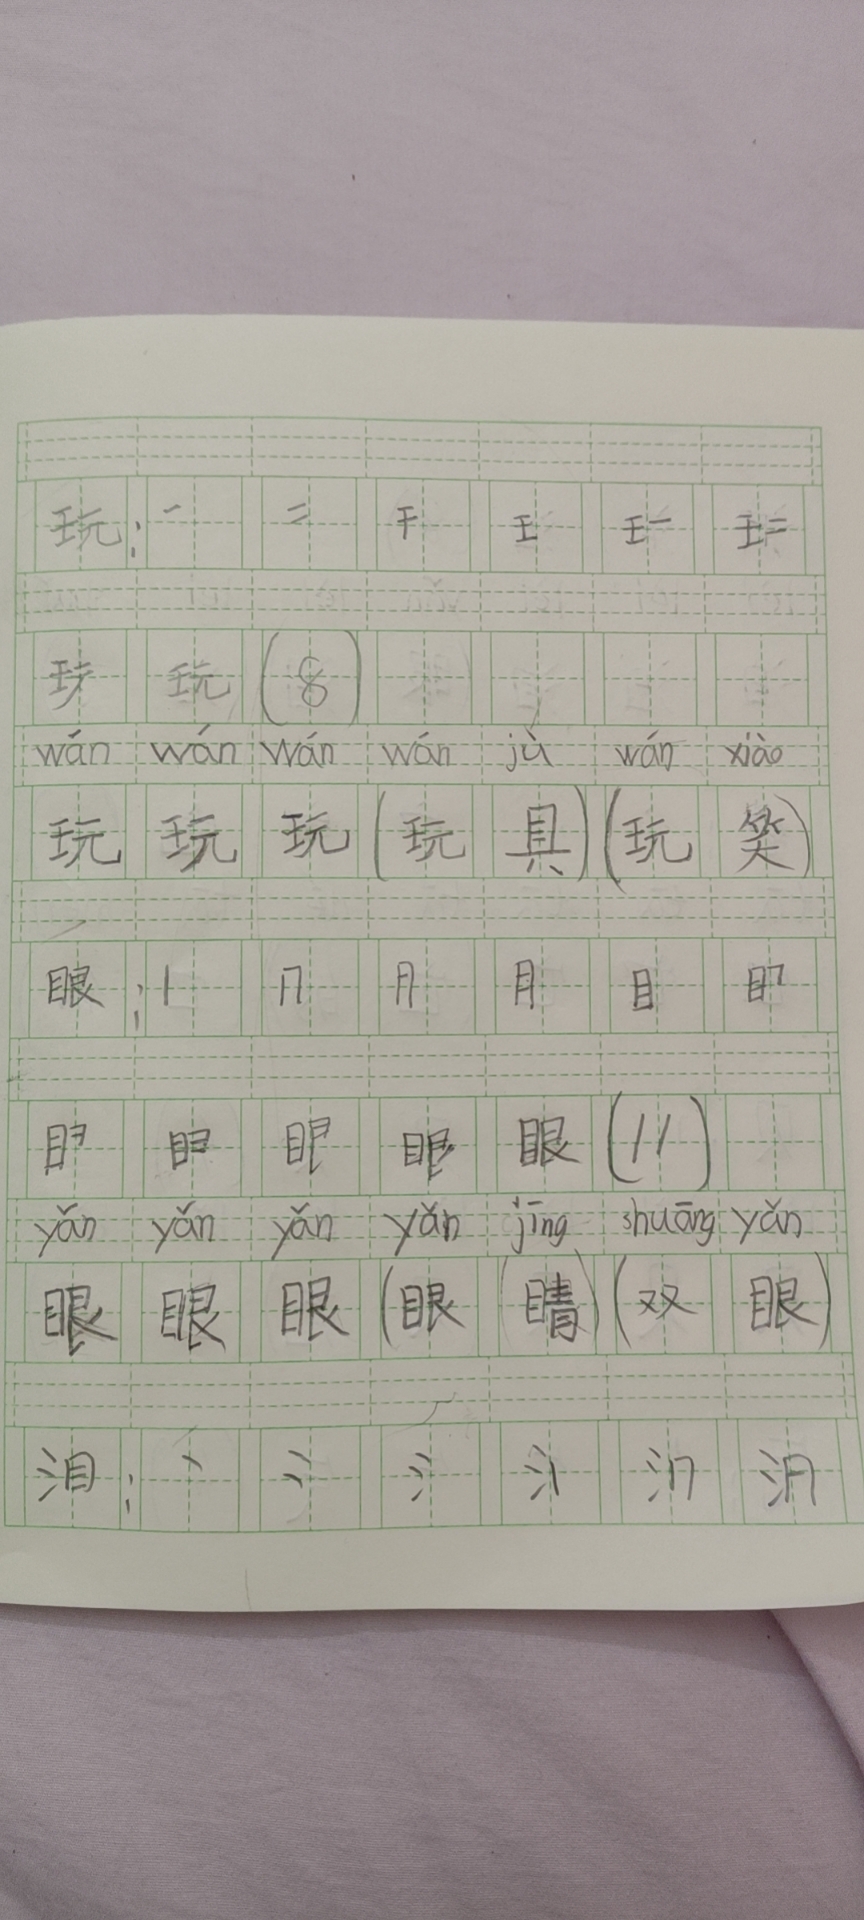 玩: 一 二 干 王 王一 王二
玩 (8)
wán wán wán wán jù wán xiào
玩 玩 玩 (玩 具) (玩 笑)
眼: 丨 冂 月 目
眼 (11)
yǎn yǎn yǎn yǎn jīng shuāng yǎn
眼 眼 眼 (眼 (睛) (双 眼)
泪: 丶 冫 氵